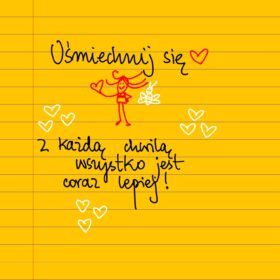 Uśmiechnij się
z każdą chwilą
wszystko jest
coraz lepiej!